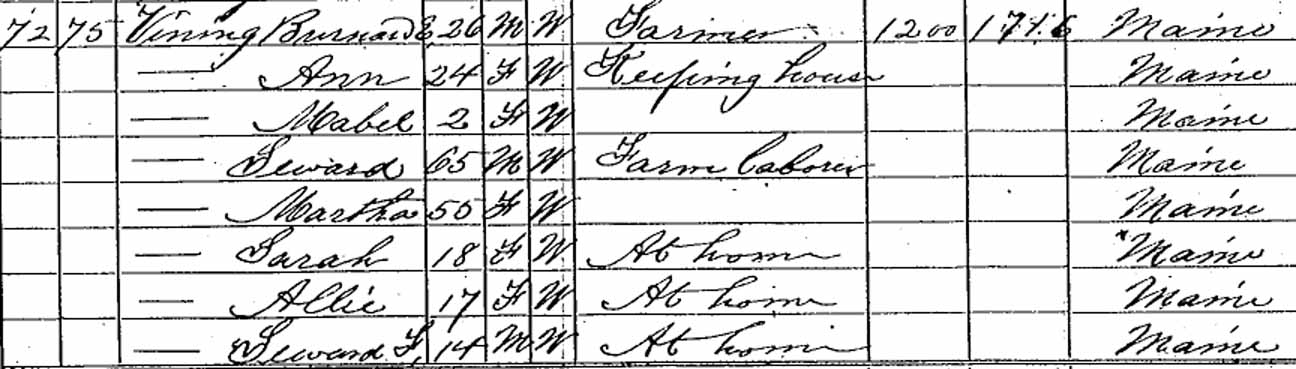 72 75 Vining Burnard E. 26 M W Farmer 1200 1716 Maine
— Ann 24 F W Keeping house Maine
— Mabel 2 F W Maine
— Seward 65 M W Farm Laborer Maine
— Martha 55 F W Maine
— Sarah 18 F W At home Maine
— Allie 17 F W At home Maine
— Seward F. 14 M W At home Maine